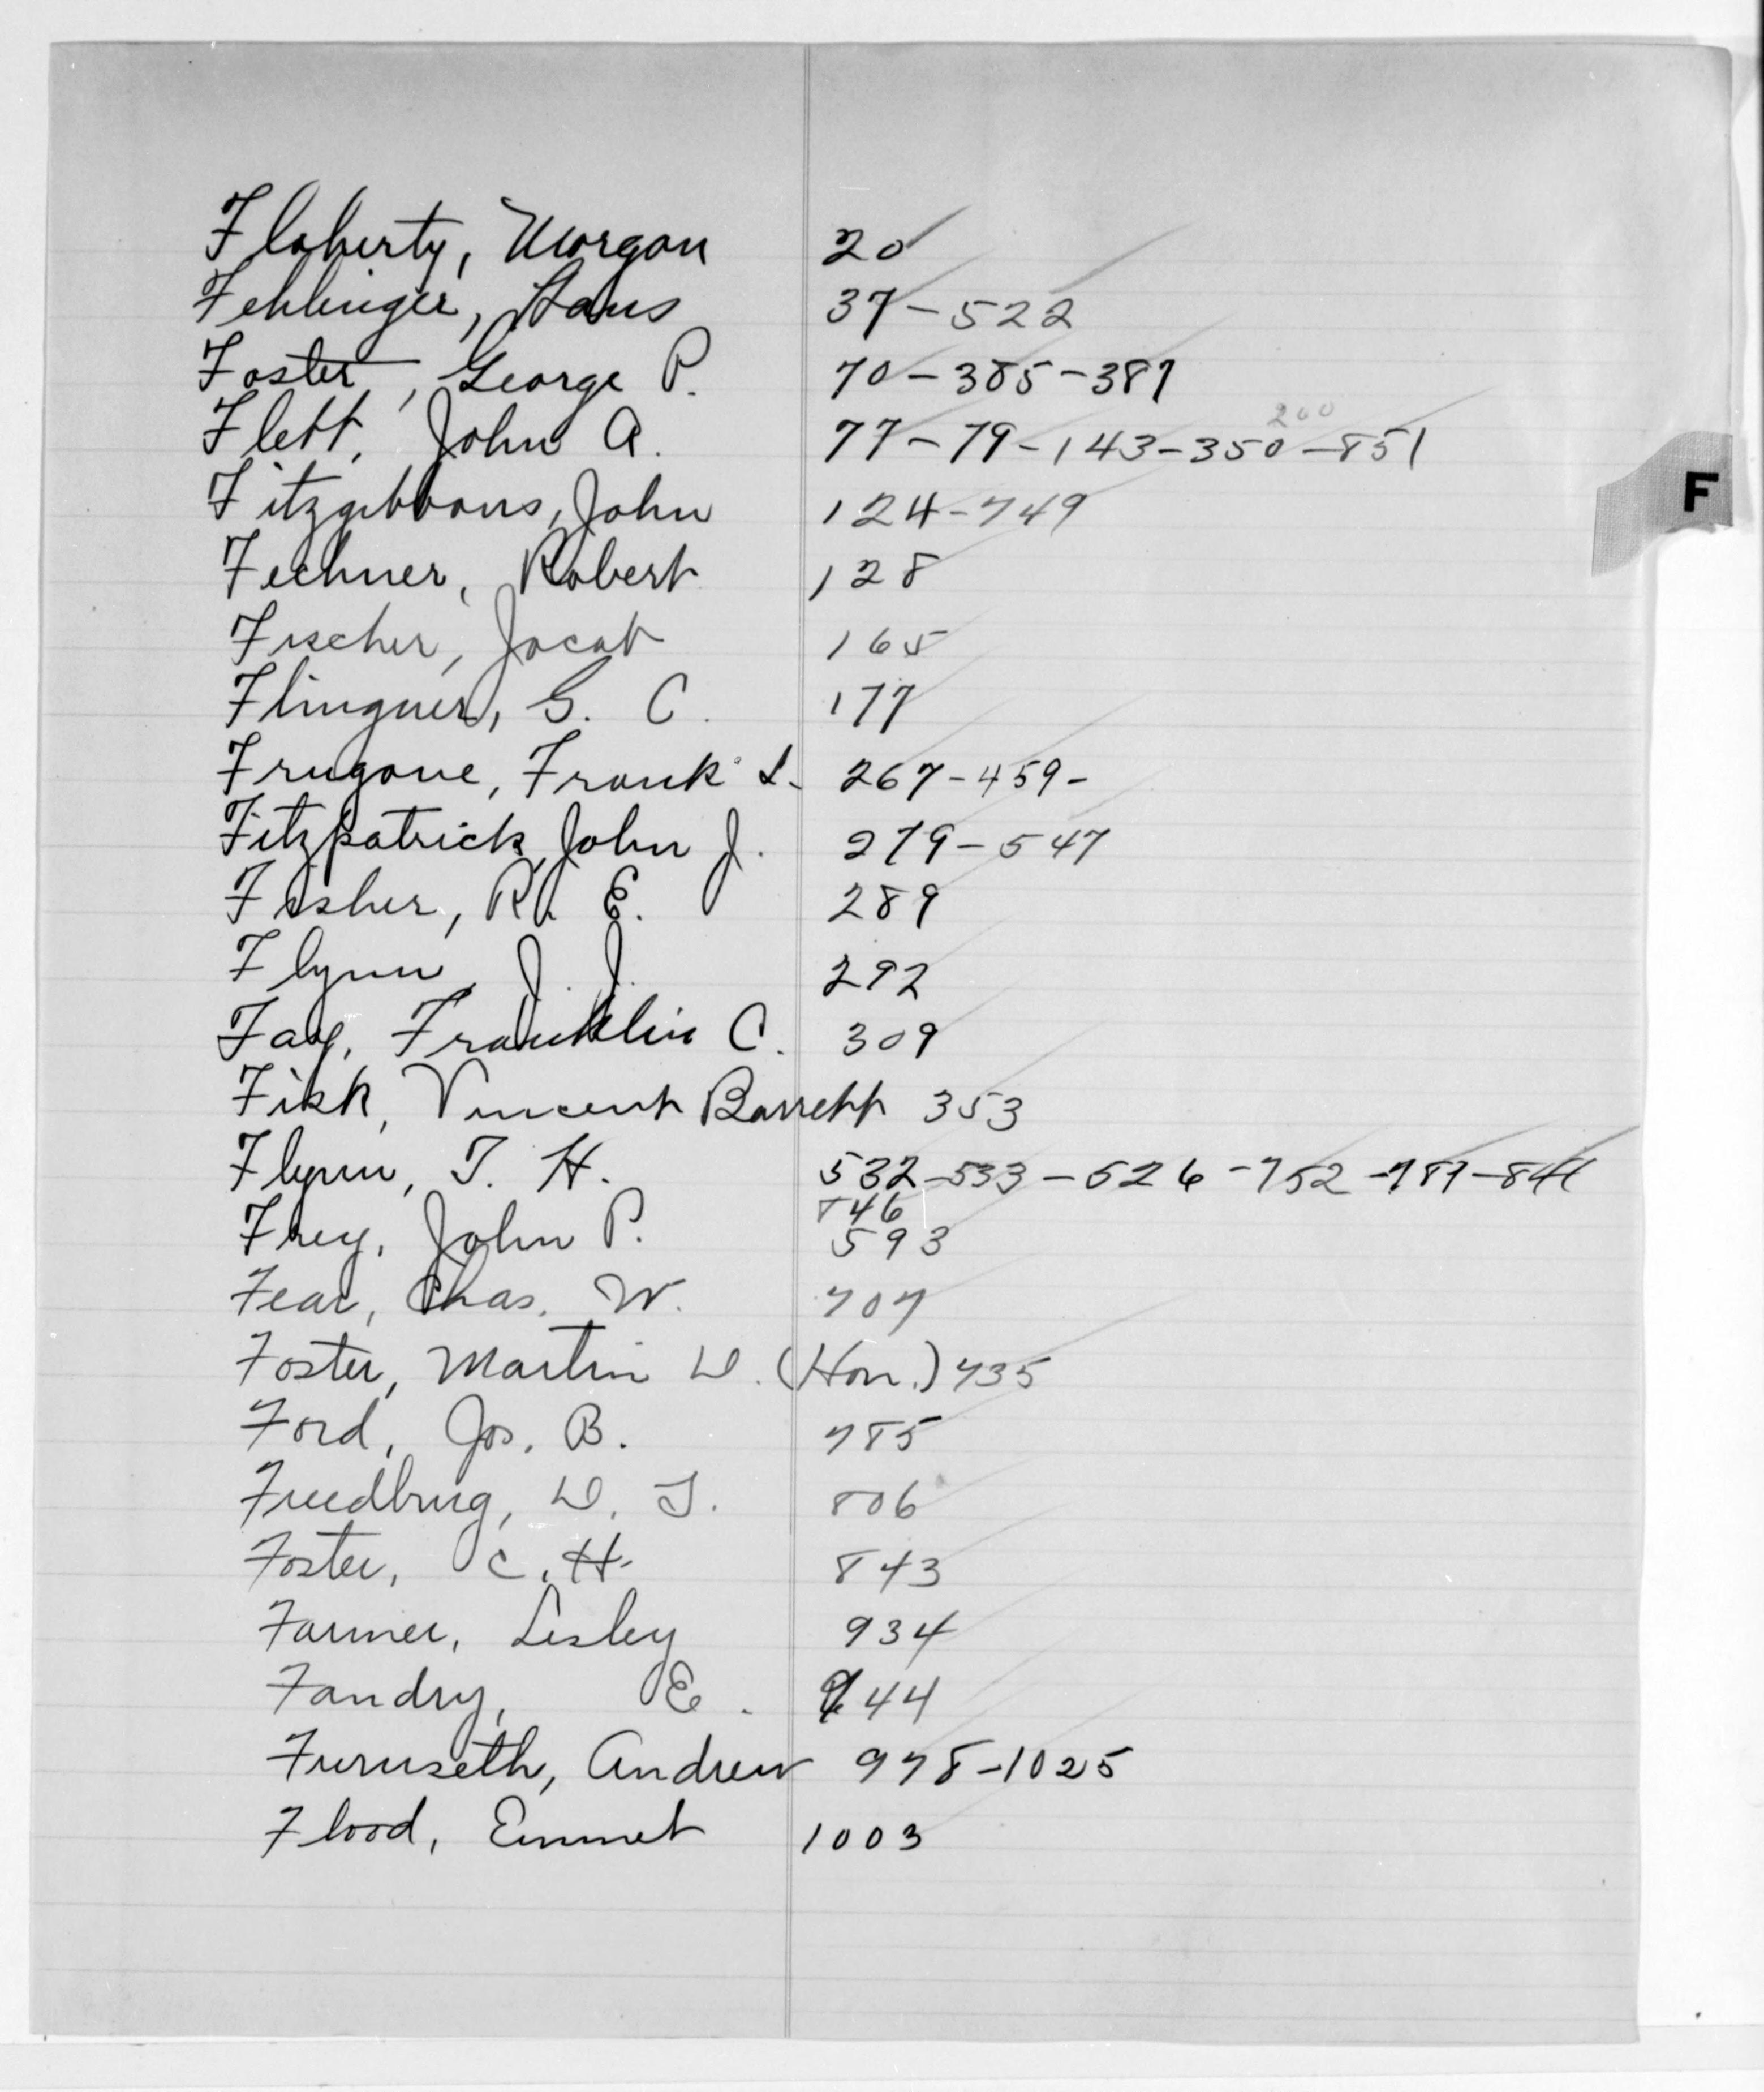 Flaherty, Morgan 20
Fehlinger, Hans 37-522
Foster, George P. 70-385-387
200
Flett, John A. 77-79-143-350-851
F
Fitzgibbons, John 124-749
Fechner, Robert 128
Fischer, Jacob 165
Flinguer, G. C. 177
Frugone, Frank L. 267-459-
Fitzpatrick, John J. 279-547
Fisher, R. E. 289
Flynn, J. J. 292
Fay, Franklin C. 309
Fisk, Vincent Barrett 353
Flynn, T. H. 532-533-626-752-787-841
846
Frey, John P. 593
Fear, Chas. W. 707
Foster, Martin D. (Hon.) 735
Ford, Jos. B. 785
Freedburg, D. T. 806
Foster, C. H. 843
Farmer, Lesley 934
Fandry, E. 944
Furuseth, Andrew 978-1025
Flood, Emmet 1003